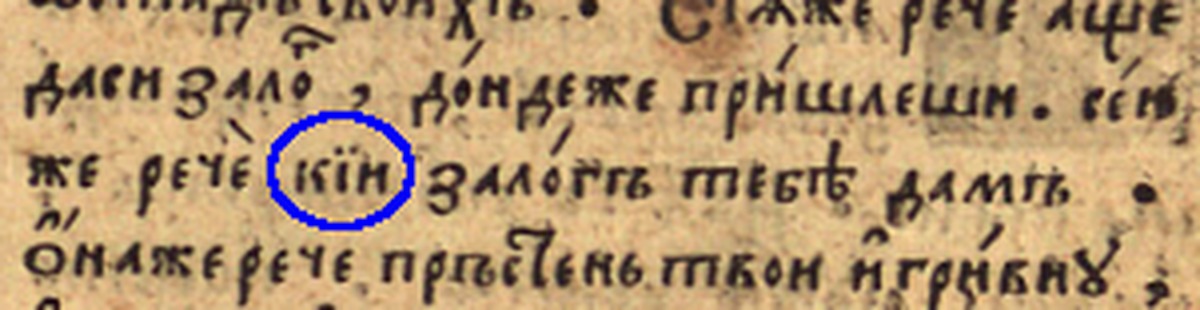 сїѧже рече аще
даси зало̑г, до́ндеже при́шлеши. се́й
же речѐ кїи зало́гъ тебѣ дамъ.
о҆́наже рече прьстень твои и҆ гри́внꙋ,